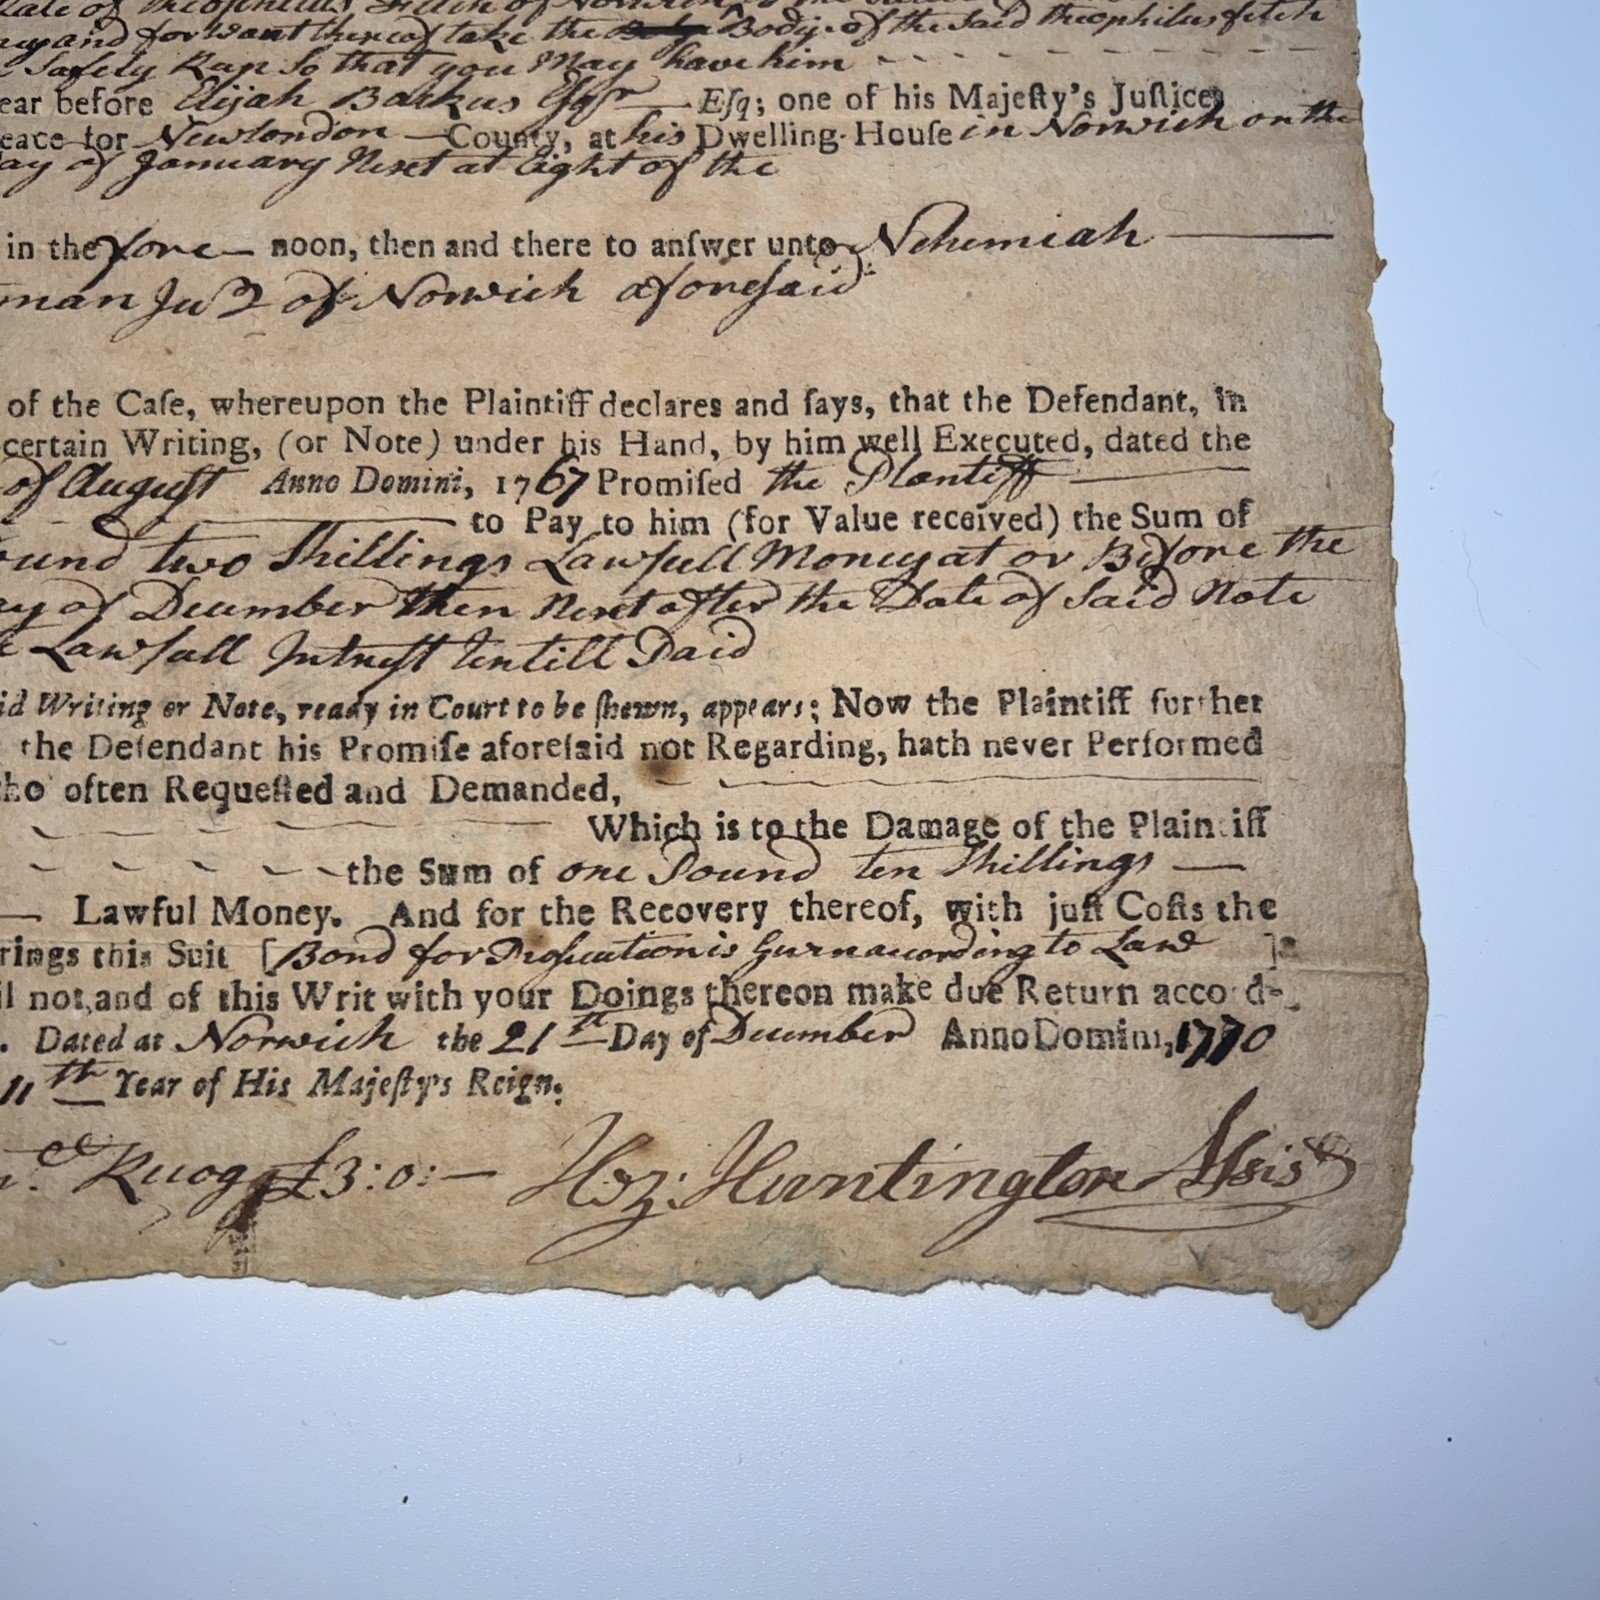 of Theophilus Fitch of Norwich
and for want thereof take the Body of the said theophilus fitch
Safely Keep So that you May have him
ear before Elijah Backus Esqr — Eſq; one of his Majeſty's Juſtices
eace for Newlondon — County, at his Dwelling-Houſe in Norwich on the
ay of January Next at Eight of the
in the fore — noon, then and there to anſwer unto Nehemiah —
man Junr of Norwich aforeſaid
of the Caſe, whereupon the Plaintiff declares and ſays, that the Defendant, in
certain Writing, (or Note) under his Hand, by him well Executed, dated the
of Auguſt Anno Domini, 1767 Promiſed the Plantiff —
to Pay to him (for Value received) the Sum of
ound two Shillings Lawfull Money at or Before the
ay of December then Next after the Date of Said Note
Lawfull Intreſt untill Paid
id Writing or Note, ready in Court to be ſhewn, appears; Now the Plaintiff further
the Defendant his Promiſe aforeſaid not Regarding, hath never Performed
ho' often Requeſted and Demanded,
Which is to the Damage of the Plaintiff
the Sum of one Pound ten Shillings —
— Lawful Money. And for the Recovery thereof, with juſt Coſts the
rings this Suit [Bond for Proſecution is Given according to Law ]
il not, and of this Writ with your Doings thereon make due Return accord-
. Dated at Norwich the 21th Day of December Anno Domini, 1770
11th Year of His Majeſty's Reign.
Recog £3:0:— Hez: Huntington Assist